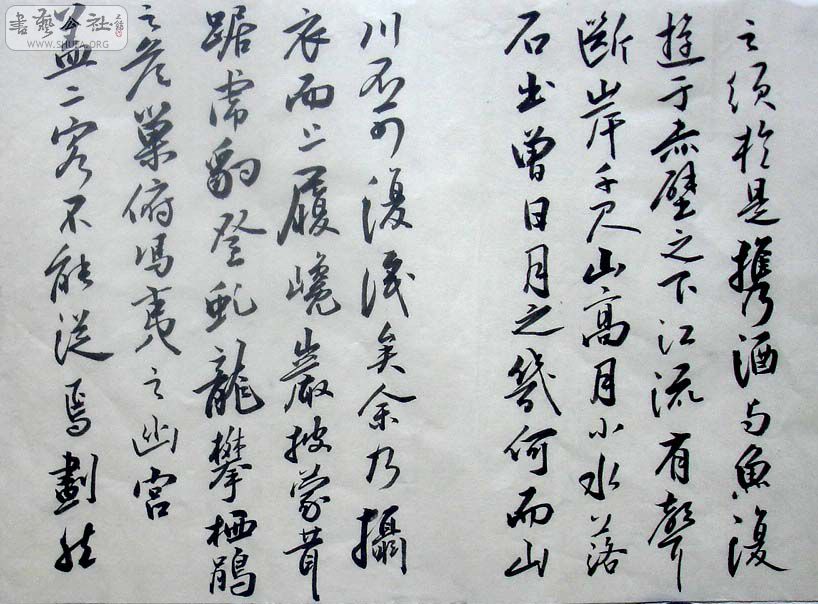 之須於是攜酒与魚復
遊于赤壁之下江流有聲
斷岸千尺山高月小水落
石出曾日月之幾何而山
川不可復識矣余乃攝
衣而上履巉巖披蒙茸
踞虎豹登虬龍攀栖鶻
之危巢俯馮夷之幽宮
蓋二客不能從焉劃然
書藝公社
WWW.SHUFA.ORG